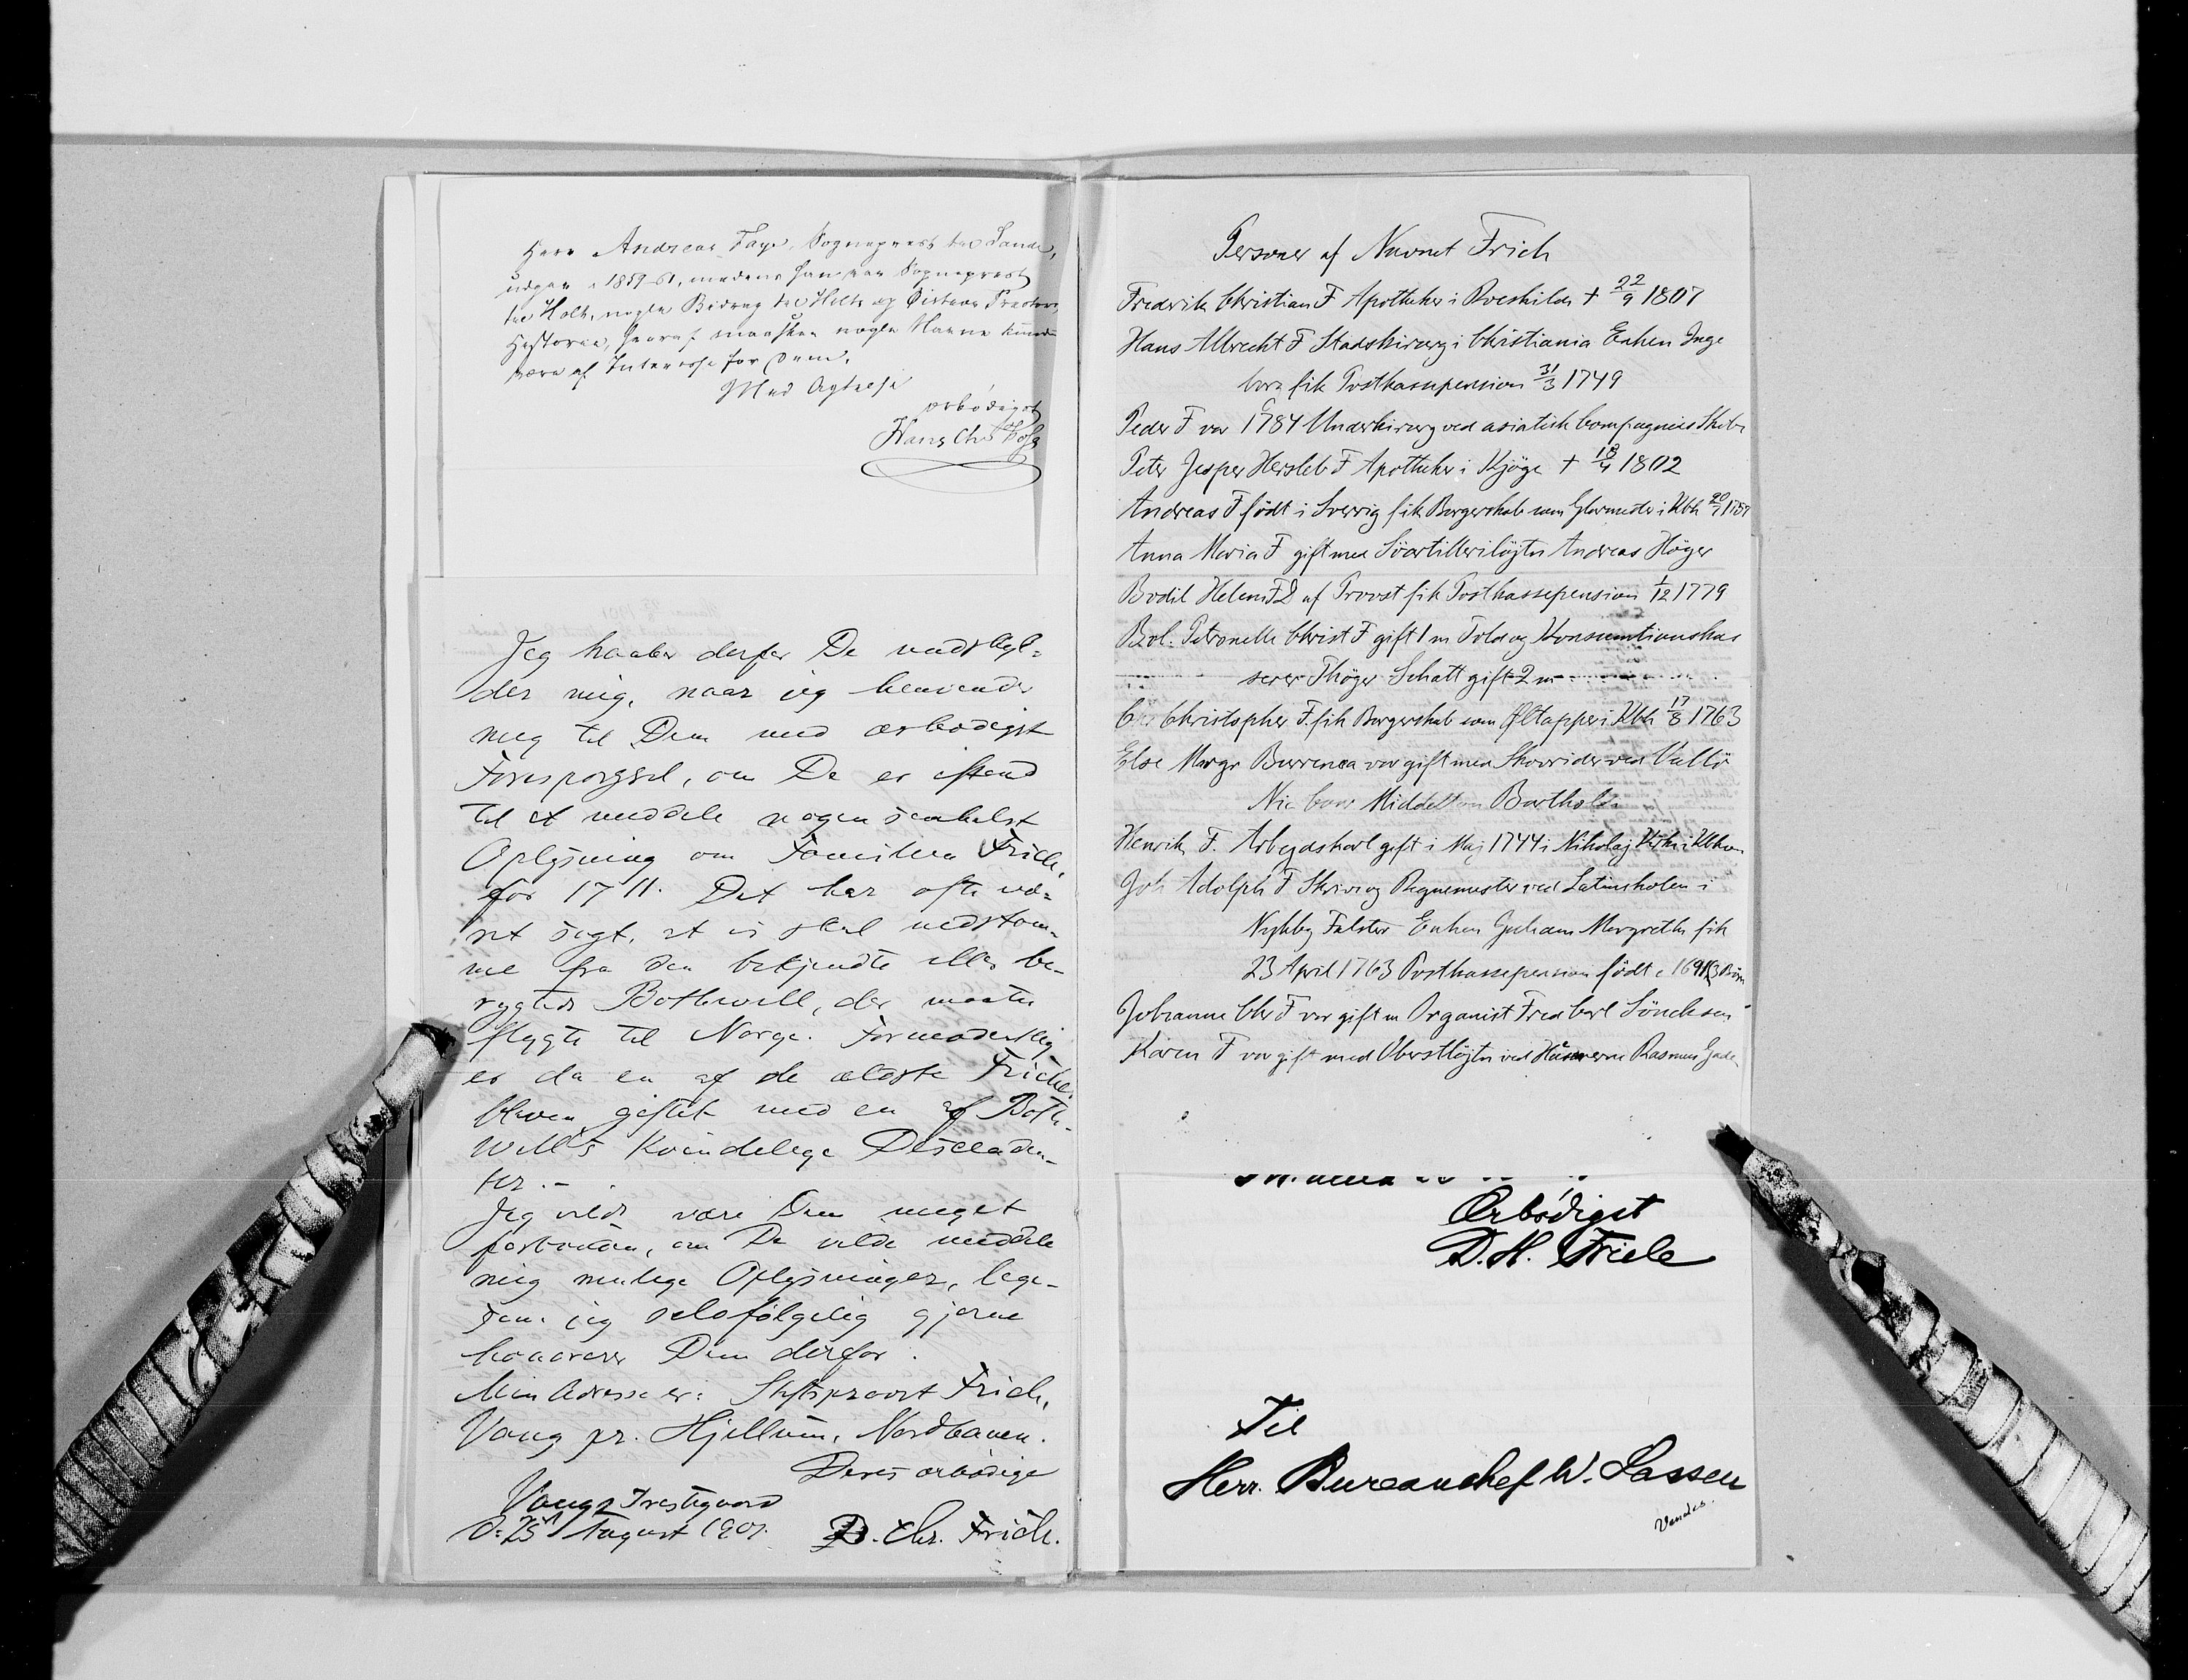 Herr Andreas Faye, Sognepræst til Sande,
udgav i 1859-61, medens han var Sognepræst
til Holt, nogle Bidrag til Holts og Disteres Præsters
Historie, hvoraf maaskee nogle Navne kunde
være af Interesse for Dem.
Med Agtelse
ærbødigst
Hans Chr.
Jeg haaber derfor De undskyl-
der mig, naar jeg henvender
mig til Dem med ærbødigst
Forespørgsel, om De er istand
til at meddele nogensomhelst
Oplysning om Familien Frich,
før 1711. Det har ofte væ-
ret sagt, at vi skal nedstam-
me fra den bekjendte eller be-
rygtede Bothwell, der maatte
flygte til Norge. Formodentlig
er da en af de ældste Fricher
bleven giftet med en af Both-
well's kvindelige Desceden-
ter.-
Jeg vilde være Dem meget
forbunden, om De vilde meddele
mig mulige Oplysninger, lige-
som jeg selvfølgelig gjerne
honorerer Dem derfor.
Min Adresse er: Stiftsprovst Frich,
Vang pr. Hjellum, Nordbanen.
Deres ærbødige
Vangs Prestegaard
d: 25 August 1901. D. Chr. Frich.
Personer af Navnet Frich
Frederik Christian F Apotheker i Roeskilde + 22/9 1807
Hans Albrecht F Stadskirurg i Christiania Enken Inge
borg fik Postkassepension 31/3 1749
Peder F var 1784 Underkirurg ved asiatisk Compagnies Skibe
Peter Jesper Hersleb F Apotheker i Kjöge + 18/4 1802
Andreas F födt i Sverrig fik Borgerskab som Glarmester i Kbh
Anna Maria F gift med Söartillerilöjtn Andreas Höyer
Bodil Helene F D af Provst fik Postkassepension 1/12 1779
Bol. Petronelle Christ F gift 1 m Told og Konsumtionskas
serer Thöger Schatt gift 2 m
Christopher F. fik Borgerskab som Øltapper i Kbh 17/8 1763
Else Margr Burrenæa var gift med Skovrider ved Vallö
Nic Middelton Bartholdi
Henrik F. Arbejdskarl gift i Maj 1744 i Nikolaj Kirke i Kbhvn
Joh Adolph F Skrive og Regnemester ved Latinskolen i
Nykbg Falster Enken Margrethe fik
23 April 1763 Postkassepension födt c 1691 3 Börn
Johanne Chr F var gift m Organist Fred Carl Sönchsen
Karen F var gift med Oberstløjtn ved Husarerne Rasmus Gade
Ærbödigst
D. H. Friele
Til
Herr. Bureauchef W. Lassen
Vendes.